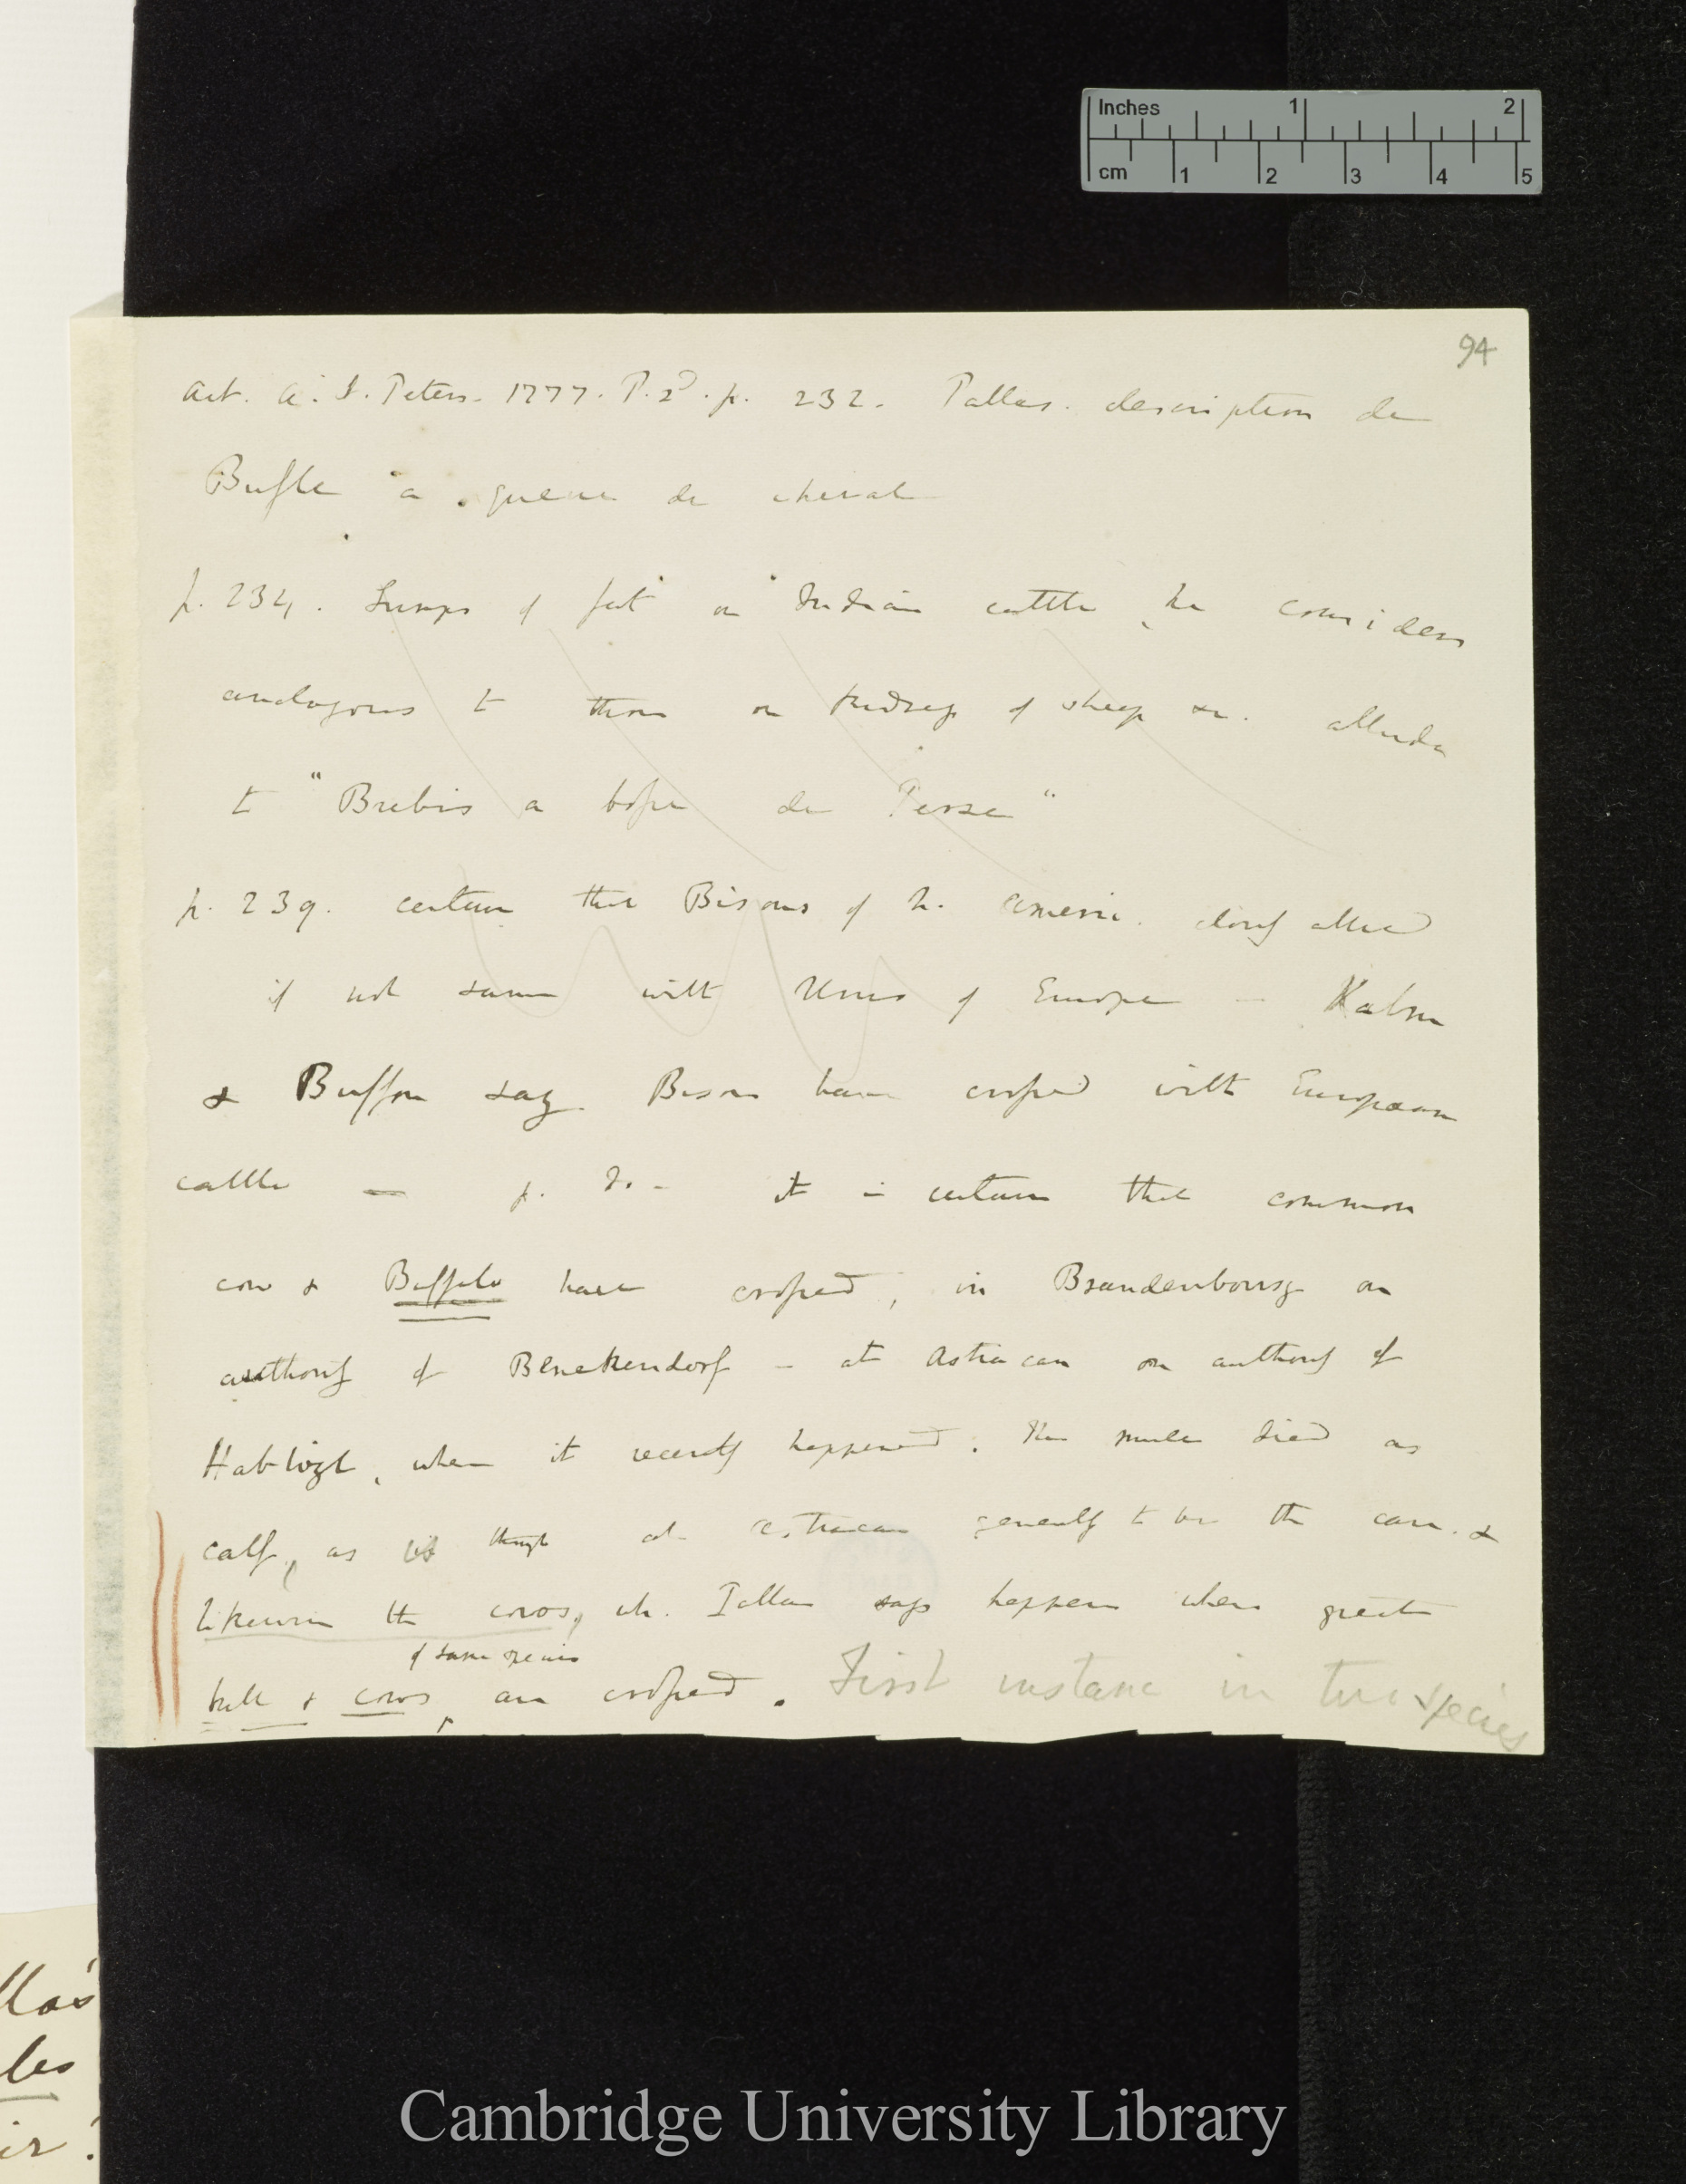 Inches 1 2
cm 1 2 3 4 5
94
Act. A. S. Peters. 1777. P. 2d. p. 232. Pallas. description de
Bufle a queue de cheval
p. 234. Lumps of fat on Indian cattle, he considers
analogous to those on rumps of sheep &c. alludes
to "Brebis a bosse de Perse"
p. 239. certain that Bisons of N. America. closely allied
if not same with Urus of Europe — Kalm
& Buffon say Bison have crossed with European
cattle — p. do. - it is certain that common
cow & Buffalo have crossed, in Brandenbourg on
authority of Benekendorf - at Astracan on authority of
Hablizl, where it recently happened. The mule died as
calf, as is thought at Astracan generally to be the case. &
likewise the cows, wh. Pallas says happens when great
of same species
bull & cows, are crossed. First instance in two species
llas
les
ir?
Cambridge University Library